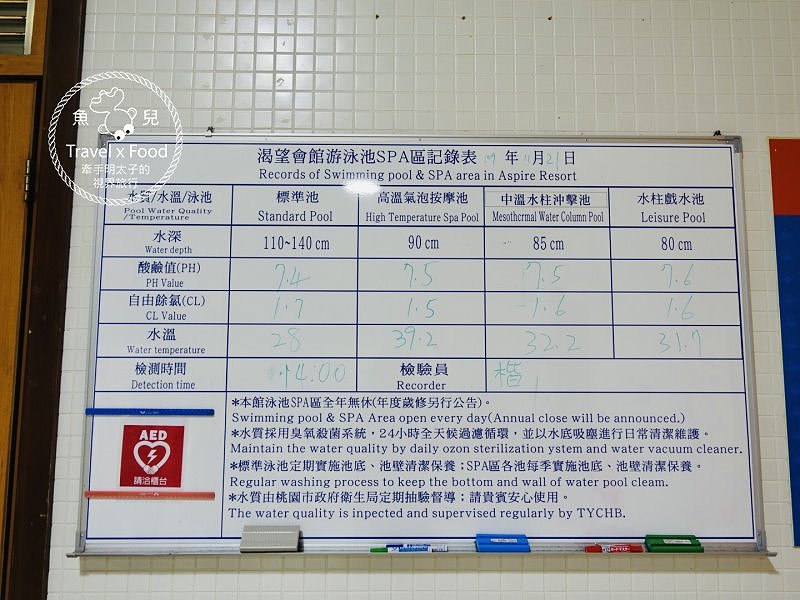 魚兒
Travel x Food
牽手明太子的
視界旅行
渴望會館游泳池SPA區記錄表 年 11月21日
Records of Swimming pool & SPA area in Aspire Resort
水質/水溫/泳池
Pool Water Quality
/Temperature
標準池
Standard Pool
高溫氣泡按摩池
High Temperature Spa Pool
中溫水柱沖擊池
Mesothermal Water Column Pool
水柱戲水池
Leisure Pool
水深
Water depth
110~140 cm
90 cm
85 cm
80 cm
酸鹼值(PH)
PH Value
7.4
7.5
7.5
7.6
自由餘氯(CL)
CL Value
1.7
1.5
1.6
1.6
水溫
Water temperature
28
39.2
32.2
31.7
檢測時間
Detection time
14:00
檢驗員
Recorder
楷
*本館泳池SPA區全年無休(年度歲修另行公告)。
Swimming pool & SPA Area open every day(Annual close will be announced.)
*水質採用臭氧殺菌系統，24小時全天候過濾循環，並以水底吸塵進行日常清潔維護。
Maintain the water quality by daily ozon sterilization ystem and water vacuum cleaner.
*標準泳池定期實施池底、池壁清潔保養；SPA區各池每季實施池底、池壁清潔保養。
Regular washing process to keep the bottom and wall of water pool cleam.
*水質由桃園市政府衛生局定期抽驗督導；請貴賓安心使用。
The water quality is inpected and supervised regularly by TYCHB.
AED
請洽櫃台